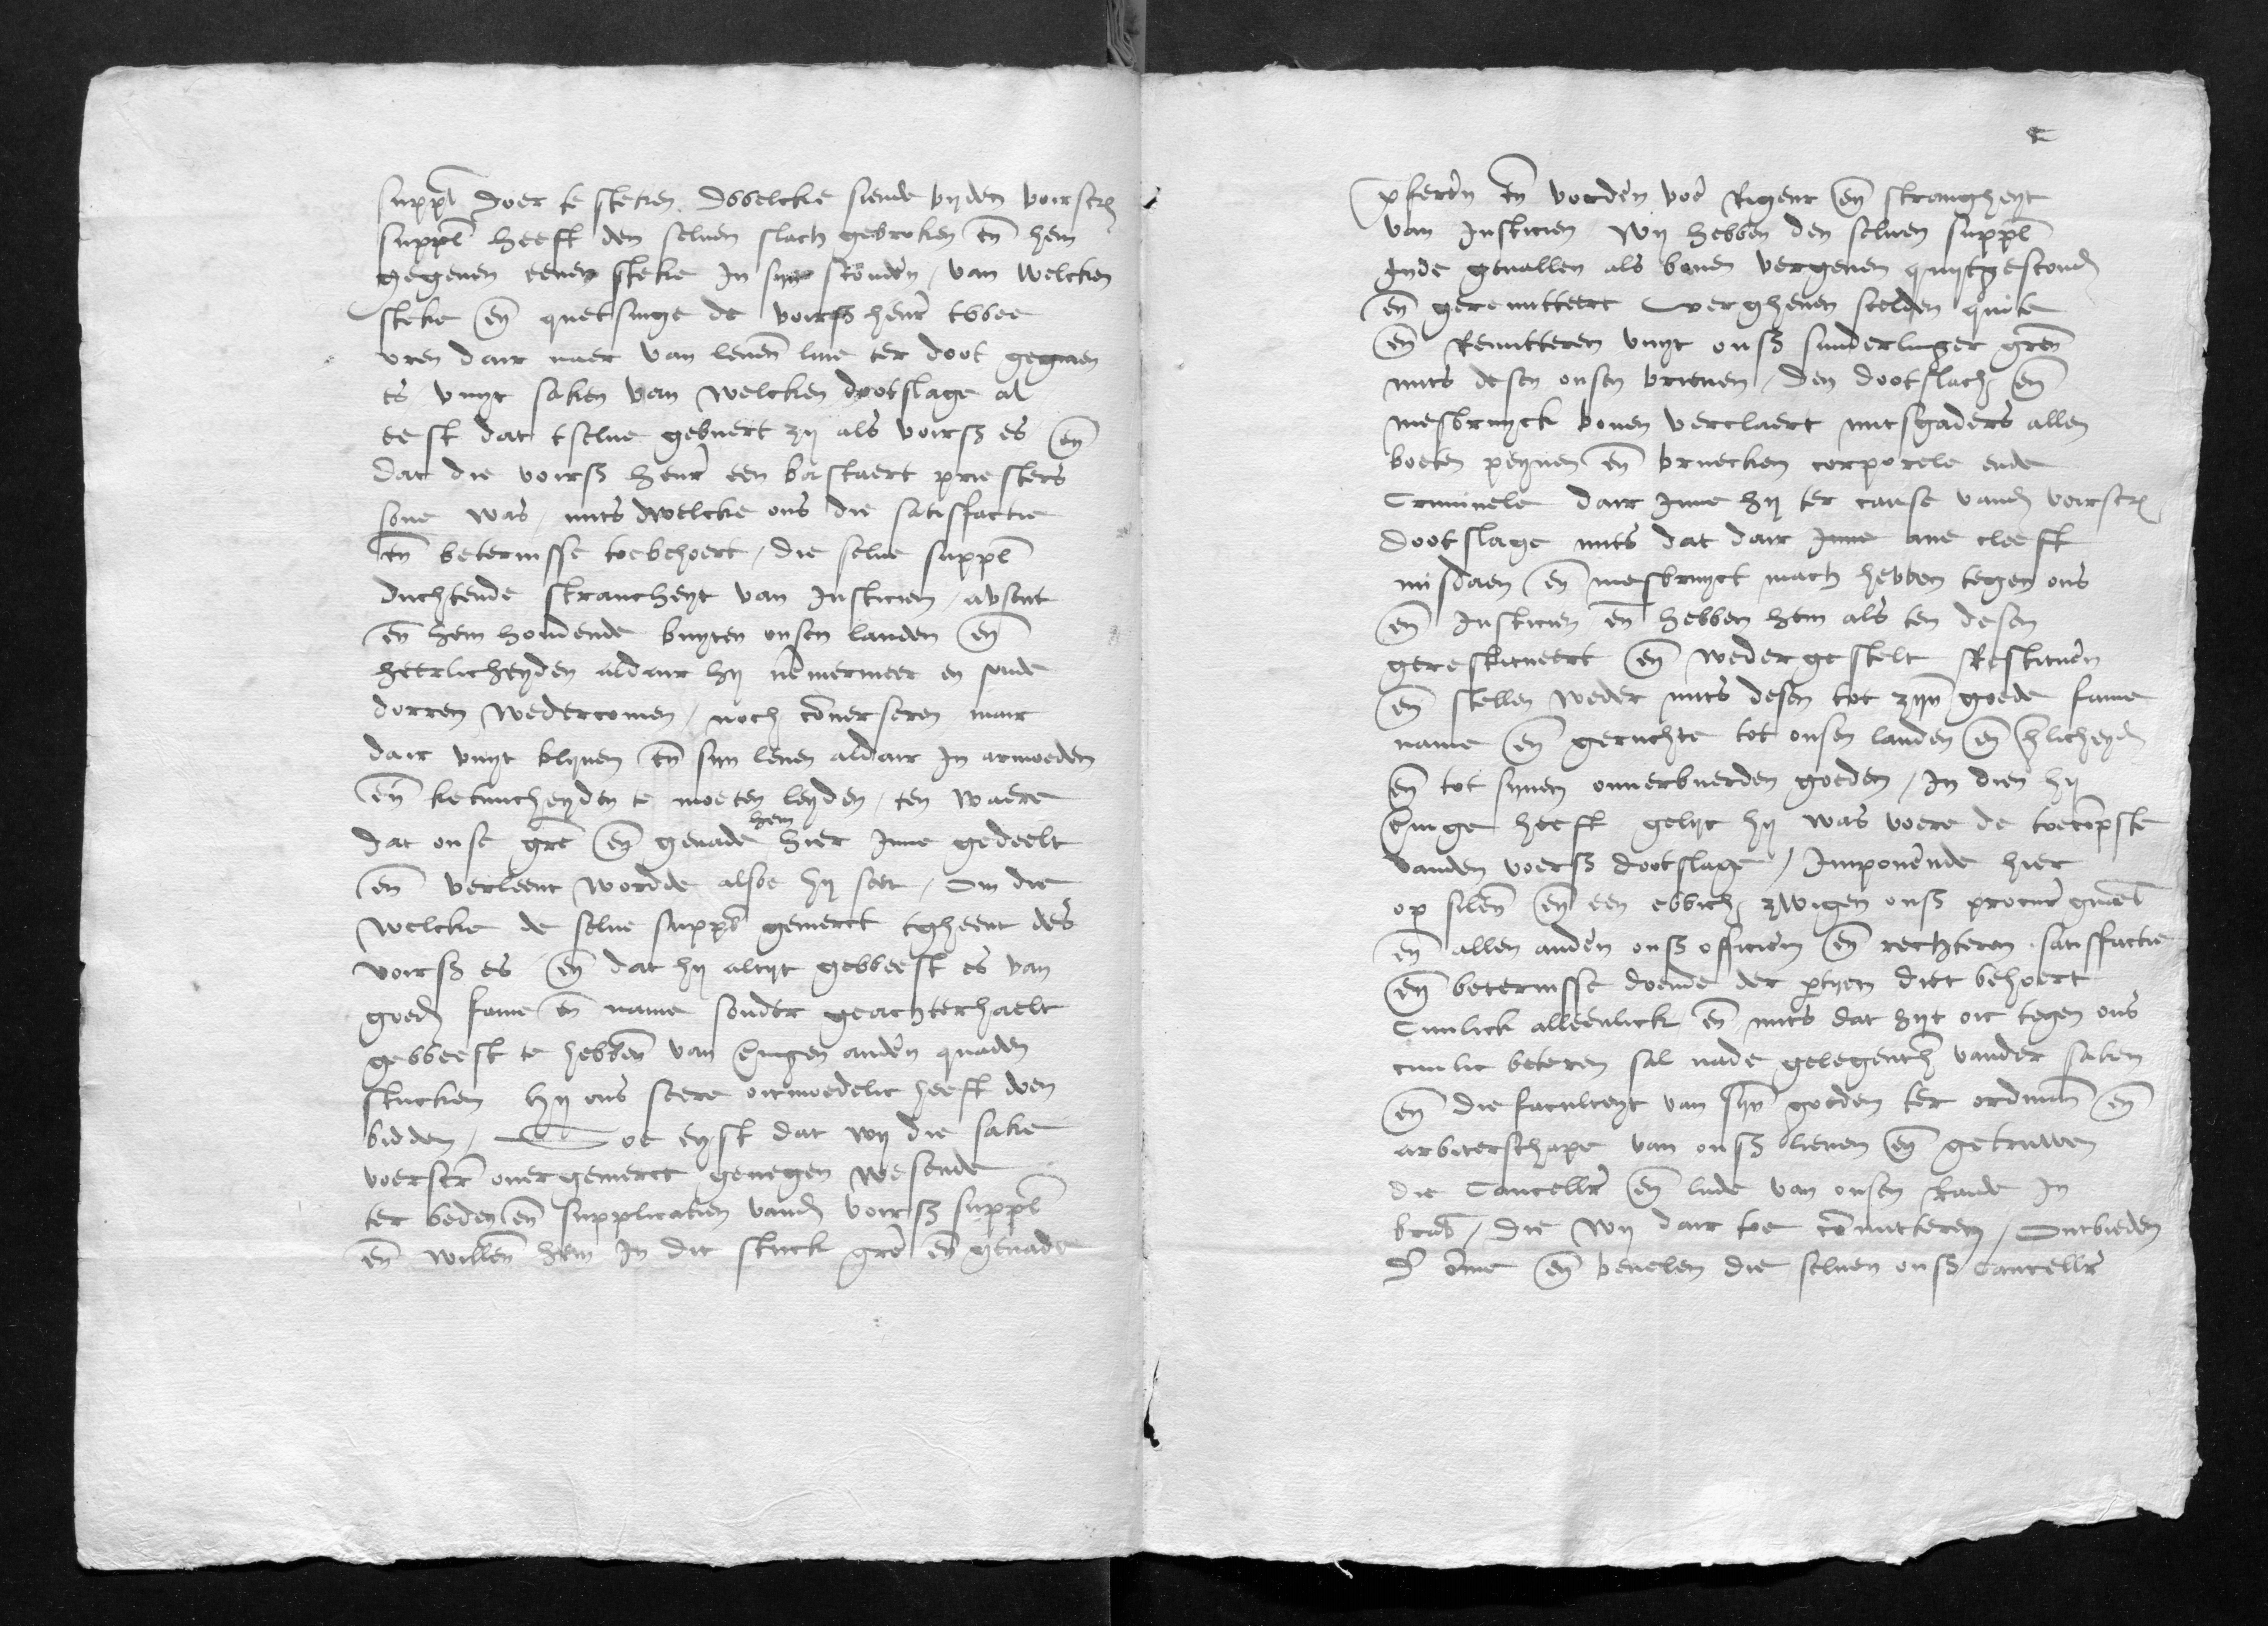 suppl doer te steken Dwelcke siende byden voirscr
suppl heeft den seluen slach gebroken en hem
gegeuen eenen steke In syn scouden / van welcken
steke en quetsinge de voirs henr twee
vren dair naer van leuen liue ter doot gegaen
es vuyt saken van welcken dootslage al
eest dat tselue gebuert zy als voirs es en
dat die voirs henr een bastaert priesters
sone was / mits dwelcke ons die satisfactie
en beternisse toebehoert / die selue suppl
duchtende strancheyt van Justicien / absent
en hem houdende buyten onsen landen en
heerlicheyden aldair hy nemermeer en soude
dorren wedercomen / noch conuerseren mair
dair vuyt blyuen en syn leuen aldair In armoeden
en ketiuicheyden te moeten leyden / ten waere
hem
dat onse gre en genade hier Inne gedeelt
en verleent wordde alsoe hy seet / Om die
welcke de selue suppl gemerct tgheent des
voirs es en dat hy altyt geweest es van
goed fame en name sonder geachterhaelt
geweest te hebben van eingen anderen quaden
stucken hy ons seere oitmoedelic heeft doen
bidden / Soe eyst dat wy die sake
voerscr ouergemerct genegen wesende
ter beden en supplicatien vand voirs suppl
en willen hem In dit stuck gre en genade
prefereren en vorderen voer Rigeur en strangheyt
van Justicien Wy hebben den seluen suppl
Inde geuallen als bouen vergeuen quytgescond
en geremitteert vergheuen scelden quite
en Remitteren vuyt onss sunderlinger gren
mits desen onsen brieuen / den dootslach en
mesbruyck bouen verclaert mitsgaders allen
boeten peynen en bruecken corporele ende
Criminele dair Inne hy ter cause vand voirscr
dootslage mits dat dair Inne ane cleeft
misdaen en mesbruyct mach hebben tegen ons
en Justicien en hebben hem als ten desen
gerestitueert en wedergestelt Restitueren
en stellen weder mits desen tot zyn goede fame
name en geruchte tot onsen landen en hlicheyd
en tot synen onuerbuerden goeden / In dien hy
einge heeft gelyc hy was voere de toecompste
vanden voers dootslage / Imponerende hier
op silen en een ewich zwigen onss procur gnael
en allen anderen onss officien en rechteren satisfactie
en beternisse doende der ptyen diet behoert
Ciuilick alleenlick en mits dat hyt oic tegen ons
ciuilic beteren sal nade gelegenth vander saken
en die faculteyt van syn goeden ter ordinan en
arbiterschape van onss lieuen en getruwen
die Cancellr en lude van onsen Rade In
brab / die wy dair toe committeren / Ontbieden
en benelen die seluen onss Cancellr